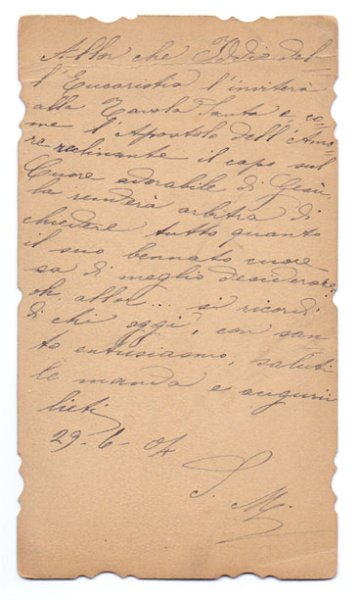 Allor che Iddio del
l'Eucaristia l'inviterà
alla Tavola Santa e, co-
me l'Apostolo dell'Amo-
re reclinante il capo sul
Cuore adorabile di Gesù,
la renderà arbitra di
chiedere tutto quanto
il suo bennato cuore
sa di meglio desiderare,
oh, allor... si ricordi
di chi oggi, con san-
to entusiasmo, saluti
le manda e augurii
lieti
29-6-04
S. M.